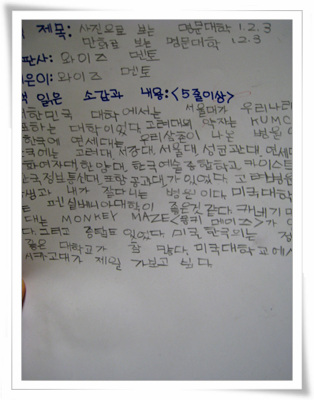 제목: 사진으로 보는 명문대학 1.2.3
만화로 보는 명문대학 1.2.3
판사: 와이즈 멘토
은이: 와이즈 멘토
읽은 소감과 내용:<5줄이상>
한민국 대학에서는 서울대가 우리나라
하는 대학이있다. 고려대의 약자는 KUMC
한국에 연세대는 우리삼촌이 나온 병원이
국에는 고려대 서강대 서울대 성균관대 연세대
화여자대 한양대 한국예술종합학교 카이스트
국정보통신대 포항공과대가있었다. 고려병원은
생과 내가 잘다니는 병원 이다. 미국대학
펜실바니아대학이 좋은것같다. 카네기
대는 MONKEY MAZE<몽키 메이즈>가
다. 그리고 중력도 있었다. 미국 한국의는
같은 대학교가 참 많다. 미국대학교에서
시카고대가 제일 가보고 싶다.